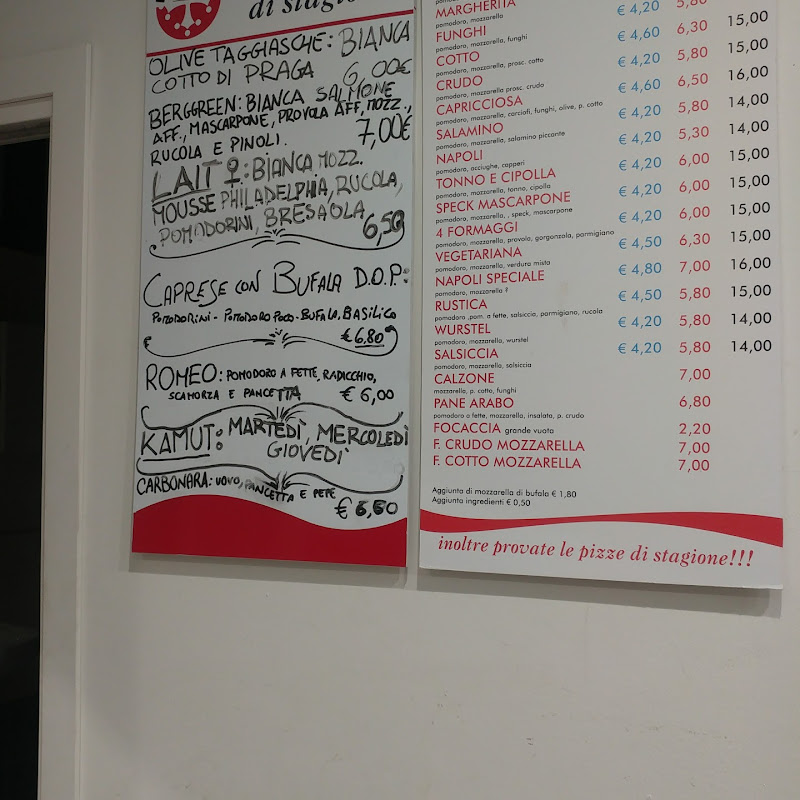 di stagio
OLIVE TAGGIASCHE: BIANCA
COTTO DI PRAGA 6,00€
BERGGREEN: BIANCA SALMONE
AFF., MASCARPONE, PROVOLA AFF, MOZZ.,
RUCOLA E PINOLI. 7,00€
LAIT ♀: BIANCA MOZZ.
MOUSSE PHILADELPHIA, RUCOLA,
POMODORINI, BRESAOLA 6,50
CAPRESE CON BUFALA D.O.P.:
POMODORINI - POMODORO POCO - BUFALA, BASILICO
€ 6.80
ROMEO: POMODORO A FETTE, RADICCHIO,
SCAMORZA E PANCETTA € 6,00
KAMUT: MARTEDÌ, MERCOLEDÌ
GIOVEDÌ
CARBONARA: UOVO, PANCETTA E PEPE
€ 6,50
MARGHERITA
pomodoro, mozzarella
FUNGHI € 4,20 5,80
pomodoro, mozzarella, funghi
COTTO € 4,60 6,30 15,00
pomodoro, mozzarella, prosc. cotto
CRUDO € 4,20 5,80 15,00
pomodoro, mozzarella prosc. crudo
CAPRICCIOSA € 4,60 6,50 16,00
pomodoro, mozzarella, carciofi, funghi, olive, p. cotto
SALAMINO € 4,20 5,80 14,00
pomodoro, mozzarella, salamino piccante
NAPOLI € 4,20 5,30 14,00
pomodoro, acciughe, capperi
TONNO E CIPOLLA € 4,20 6,00 15,00
pomodoro, mozzarella, tonno, cipolla
SPECK MASCARPONE € 4,20 6,00 15,00
pomodoro, mozzarella, , speck, mascarpone
4 FORMAGGI € 4,20 6,00 15,00
pomodoro, mozzarella, provola, gorgonzola, parmigiano
VEGETARIANA € 4,50 6,30 15,00
pomodoro, mozzarella, verdura mista
NAPOLI SPECIALE € 4,80 7,00 16,00
pomodoro, mozzarella ?
RUSTICA € 4,50 5,80 15,00
pomodoro ,pom. a fette, salsiccia, parmigiano, rucola
WURSTEL € 4,20 5,80 14,00
pomodoro, mozzarella, wurstel
SALSICCIA € 4,20 5,80 14,00
pomodoro, mozzarella, salsiccia
CALZONE 7,00
mozzarella, p. cotto, funghi
PANE ARABO 6,80
pomodoro a fette, mozzarella, insalata, p. crudo
FOCACCIA grande vuota 2,20
F. CRUDO MOZZARELLA 7,00
F. COTTO MOZZARELLA 7,00
Aggiunta di mozzarella di bufala € 1,80
Aggiunta ingredienti € 0,50
inoltre provate le pizze di stagione!!!